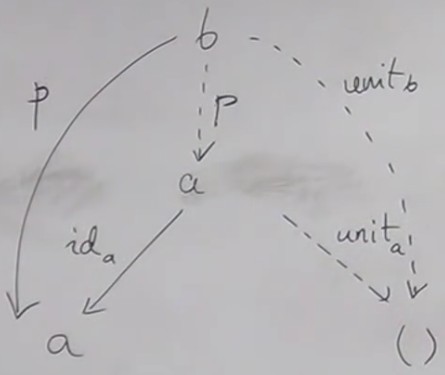 b
p
unit_b
p
a
id_a
unit_a
a
()